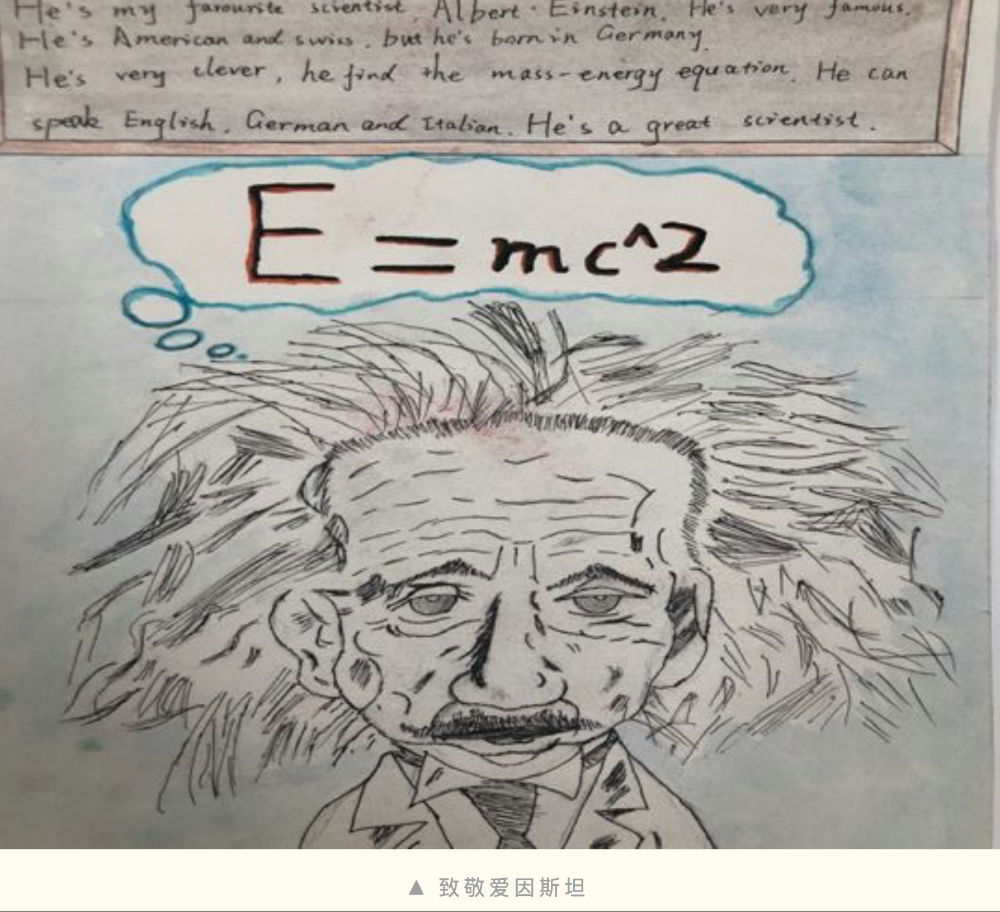 He's my favourite scientist Albert · Einstein. He's very famous.
He's American and swiss, but he's born in Germany.
He's very clever, he find the mass-energy equation. He can
speak English, German and Italian. He's a great scientist.
E = mc^2
▲ 致敬爱因斯坦